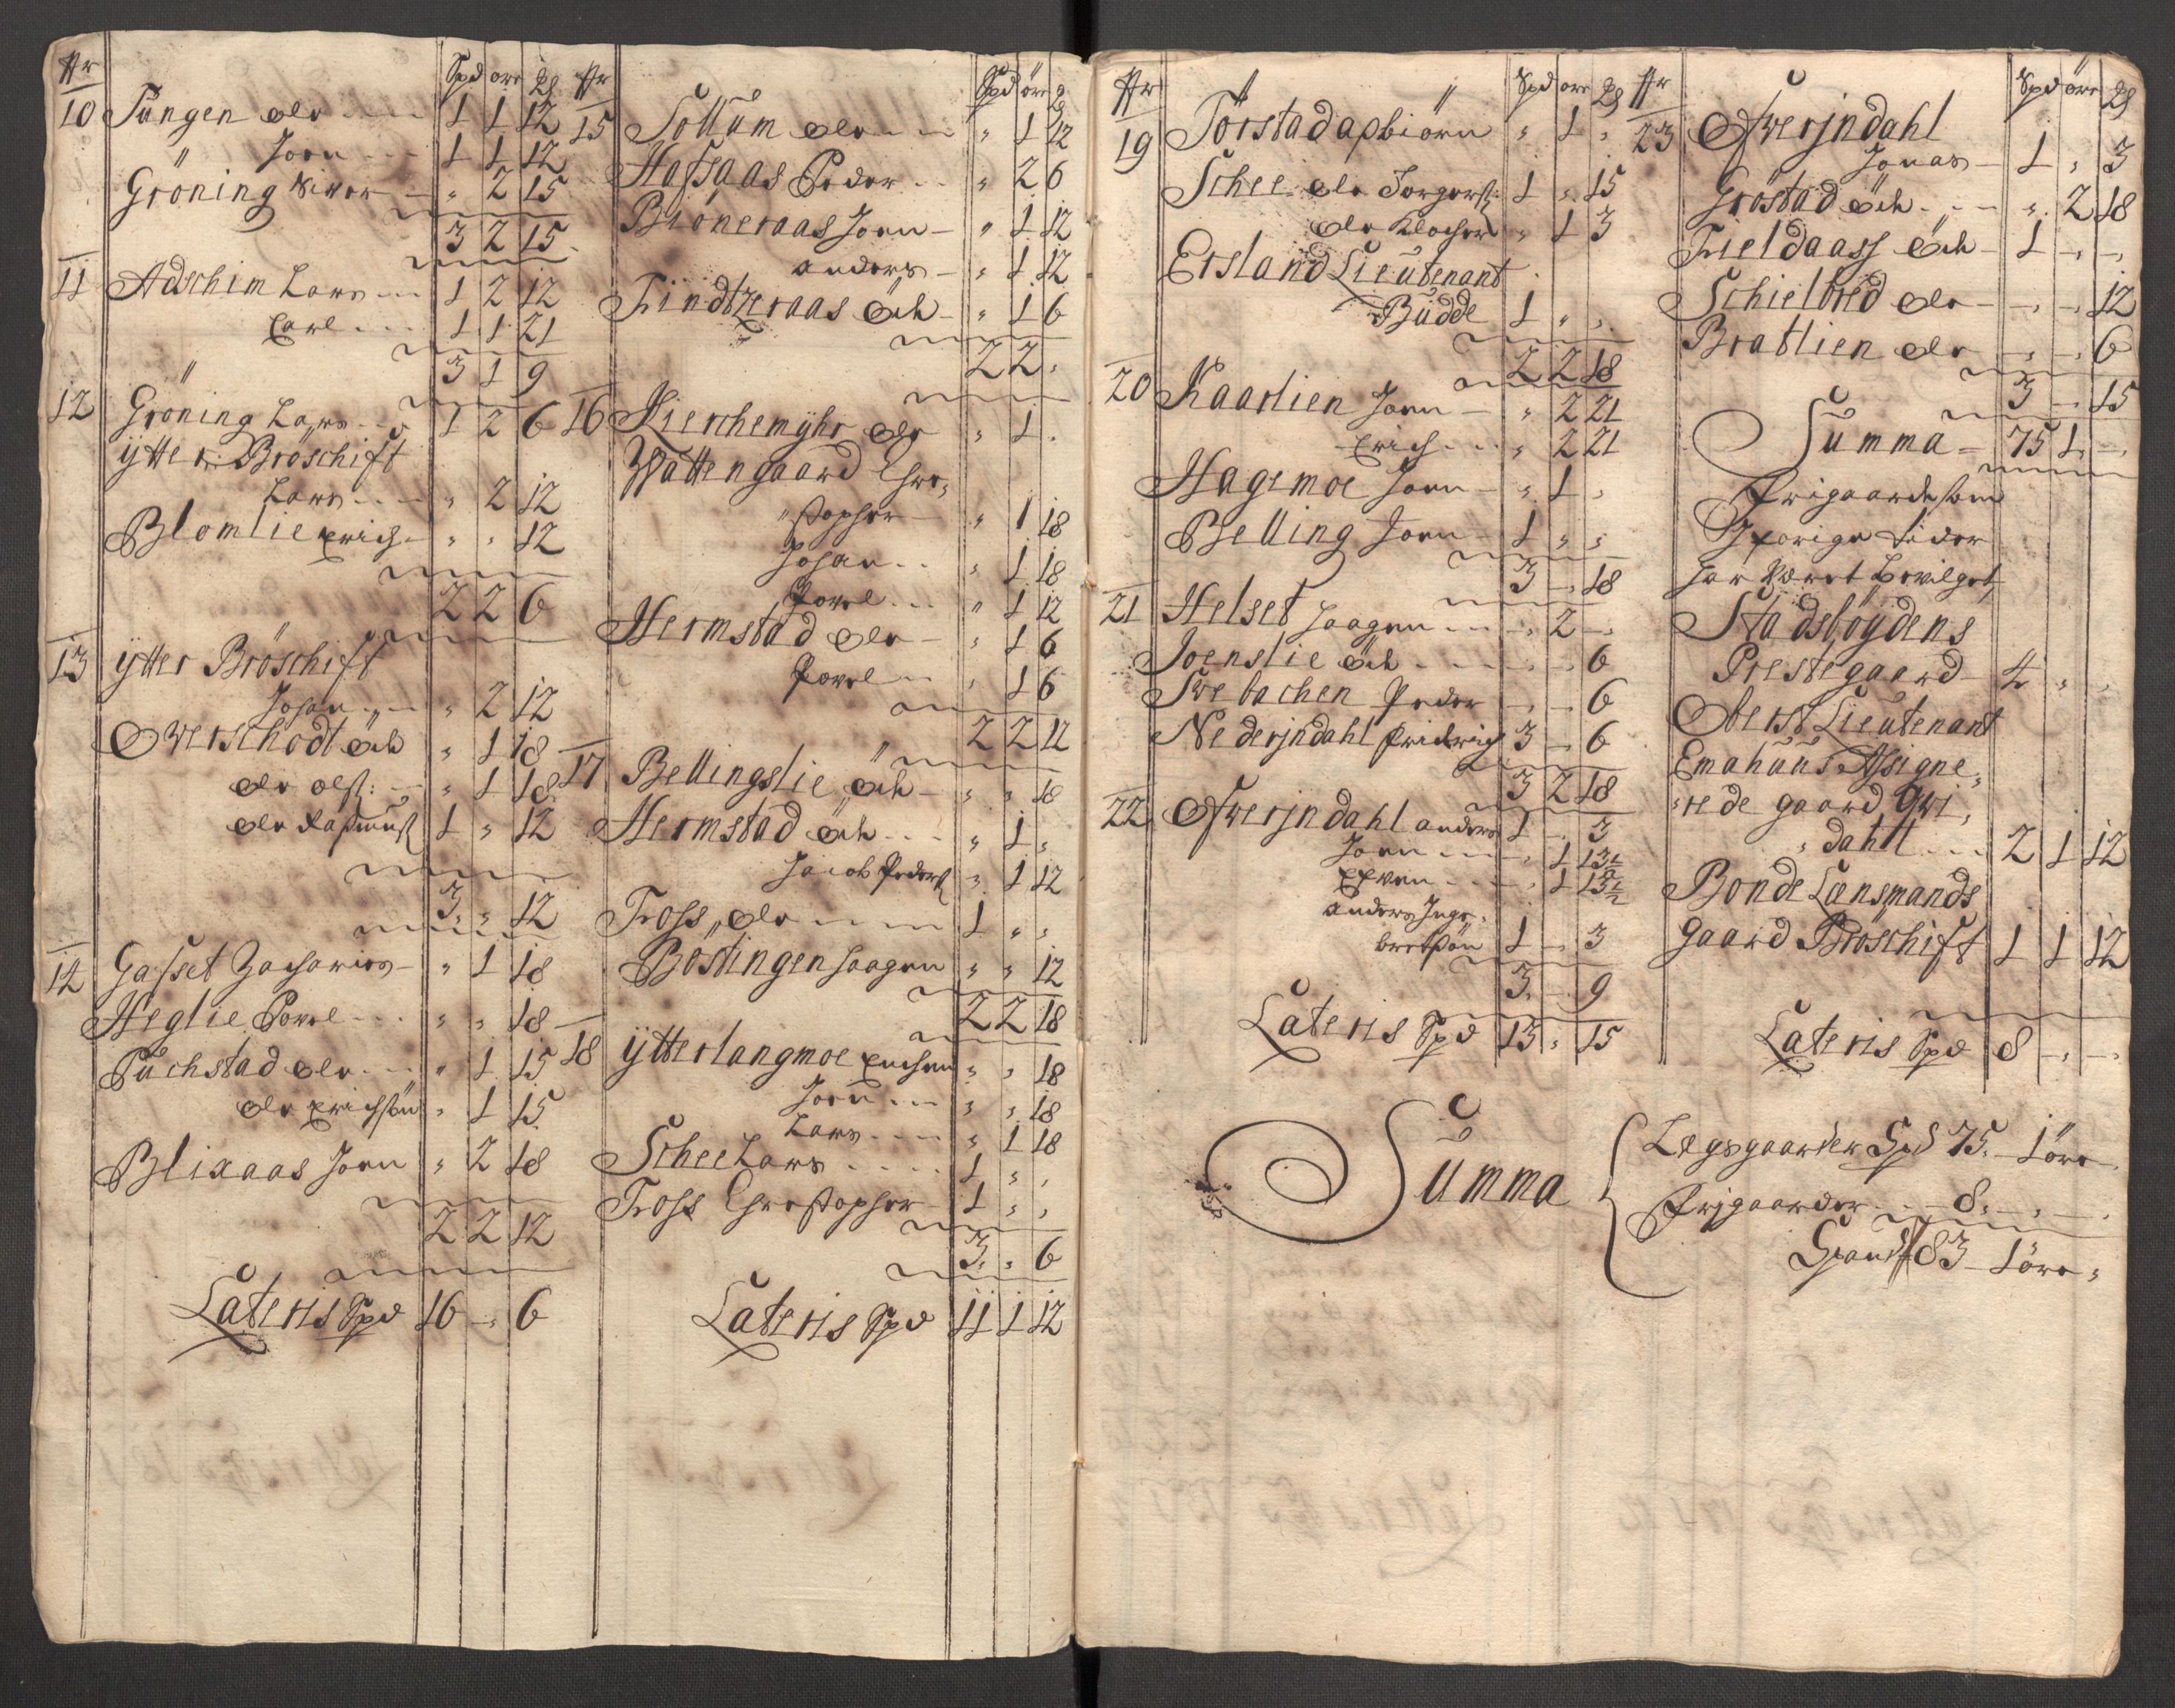 Nr Spd ore
10 Tüngen ole 1 1 12
Joen 1 1 12
Gröning Siver " 2 15
3 2 15
11 Adschim Lars 1 2 12
Carl 1 1 21
3 1 9
12 Gröning Lars 1 2 6
ÿtter Bröschift
Lars " 2 12
Blomlie Erich " " 12
2 2 6
13 ÿtter Bröschift
Johan " 2 12
Owerschodt " 1 18
ole olss: " 1 18
ole Rasmuss 1 " 12
3 " 12
14 Gasset Zacharias " 1 18
Heglie Povel " " 18
Püchstad ole " 1 15
ole Erichsøn " 1 15
Blixaas Joen " 2 18
2 2 12
Lateris Spd 16 - 6
Nr Spd öre
15 Sollüm ole " 1 12
Hassaas Peder " 2 6
Bioneraas Joen " 1 12
anders " 1 12
Kindtzeraas " 1 6
2 2 "
16 Kierchemÿhr ole " 1 "
Wattengaard Chri
stopher " 1 18
Johan " 1 18
Povel " 1 12
Hermstad ole " 1 6
Povel " 1 6
2 2 12
17 Bellingslie " " 18
Hermstad " 1 "
Jacob Pederss " 1 12
Tross ole 1 " "
Böstingen Haagen " " 12
2 2 18
18 ÿtterlangmoe " " 18
Joen " " 18
Lars " 1 18
Schee Lars 1 " "
Tross Christopher 1 " "
3 " 6
Lateris Spd 11 1 12
Nr Spd ore
19 Törstad asbiörn " 1 "
Schee ole Torgerss: 1 " 15
ole Klocher " 1 3
Ersland Lieütenant
Büdde 1 " "
2 2 18
20 Kaarlien Joen " 2 21
Erich " 2 21
Hagemoe Joen " 1 "
Belling Joen 1 " "
3 - 18
21 Helset Haagen - 2 -
Joenslie - - 6
Swebachen Peder - - 6
Nederjndahl Fridrich 3 - 6
3 2 18
22 Öfwerjndahl anders 1 - 3
Joen - 1 13½
- 1 13½
anders Inge
bretsøn 1 - 3
3 - 9
Lateris Spd 13 " 15
Nr Spd öre
23 Öfwerjndahl
Jonas 1 " 3
Gröstad " 2 18
Fieldaass 1 - -
Schielbred ole - - 12
Bratlien ole - - 6
3 - 15
Summa 75 1 -
Frigaarde som
J forige tider
har Været bevilget
Stadsböÿdens
Prestegaard 4 " "
Oberst Lieütenant
Emahüus Assigne
rede gaard Qwi
dahll 2 1 12
Bonde Lænsmands
gaard Bröschift 1 1 12
Lateris Spd 8 - -
Summa
Lægsgaarder Spd 75 - 1 öre
Frigaarder 8 - -
83 - 1 öre